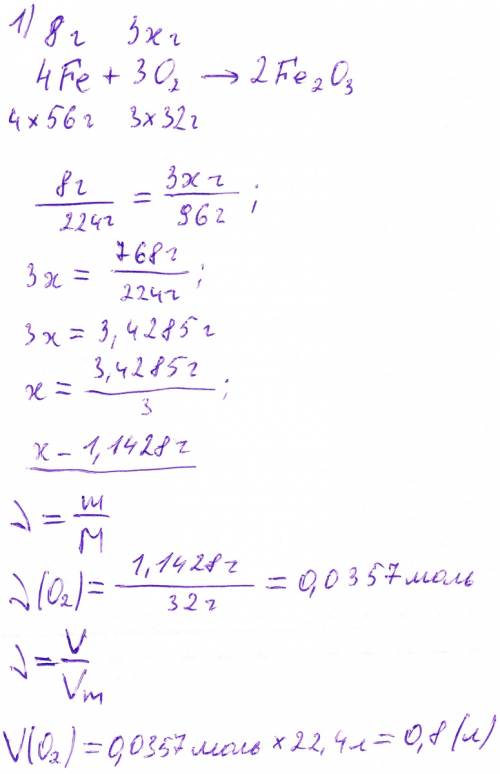 1) 8г 3хг
4Fe + 3O₂ → 2Fe₂O₃
4×56г 3×32г
8г/224г = 3хг/96г;
3х = 768г/224г;
3х = 3,4285г
х = 3,4285г/3;
х – 1,1428г
ν = m/M
ν(O₂) = 1,1428г/32г = 0,0357 моль
ν = V/Vm
V(O₂) = 0,0357 моль × 22,4л = 0,8 (л)